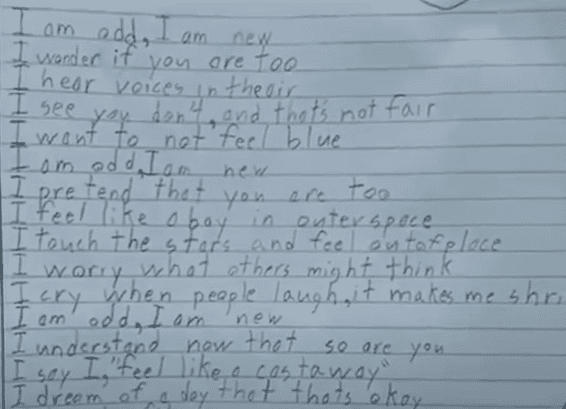 I am odd, I am new
I wonder if you are too
I hear voices in the air
I see you don't, and that's not fair
I want to not feel blue
I am odd, I am new
I pretend that you are too
I feel like a boy in outerspace
I touch the stars and feel out of place
I worry what others might think
I cry when people laugh, it makes me shri
I am odd, I am new
I understand now that so are you
I say I, "feel like a castaway"
I dream of a day that thats okay